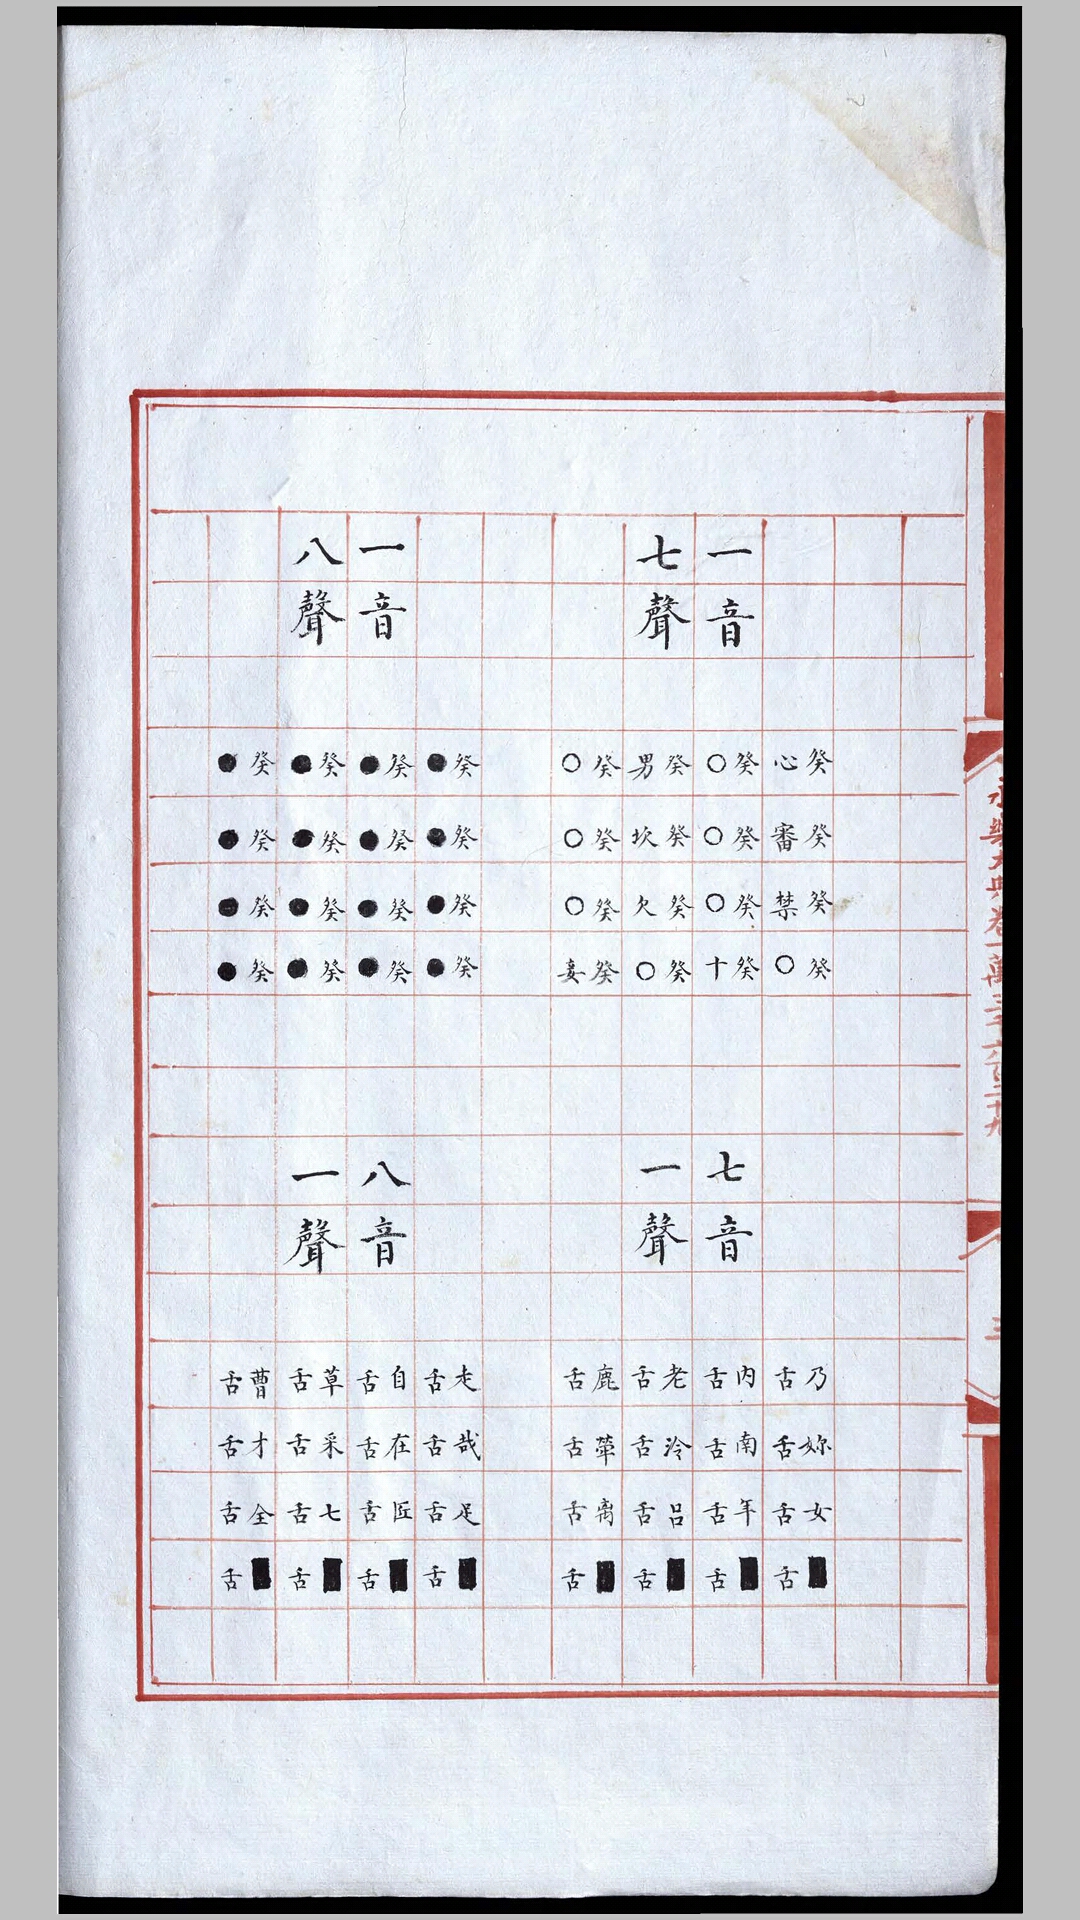 永樂大典卷一萬三千六百二十九
癸心癸審癸禁癸○
乃舌妳舌女舌■舌
一音
癸○癸○癸○癸十
七音
內舌南舌年舌■舌
七聲
癸男癸坎癸欠癸○
一聲
老舌冷舌呂舌■舌
癸○癸○癸○癸妾
鹿舌犖舌离舌■舌
癸●癸●癸●癸●
走舌哉舌足舌■舌
一音
癸●癸●癸●癸●
八音
自舌在舌匠舌■舌
八聲
癸●癸●癸●癸●
一聲
草舌采舌七舌■舌
癸●癸●癸●癸●
曹舌才舌全舌■舌